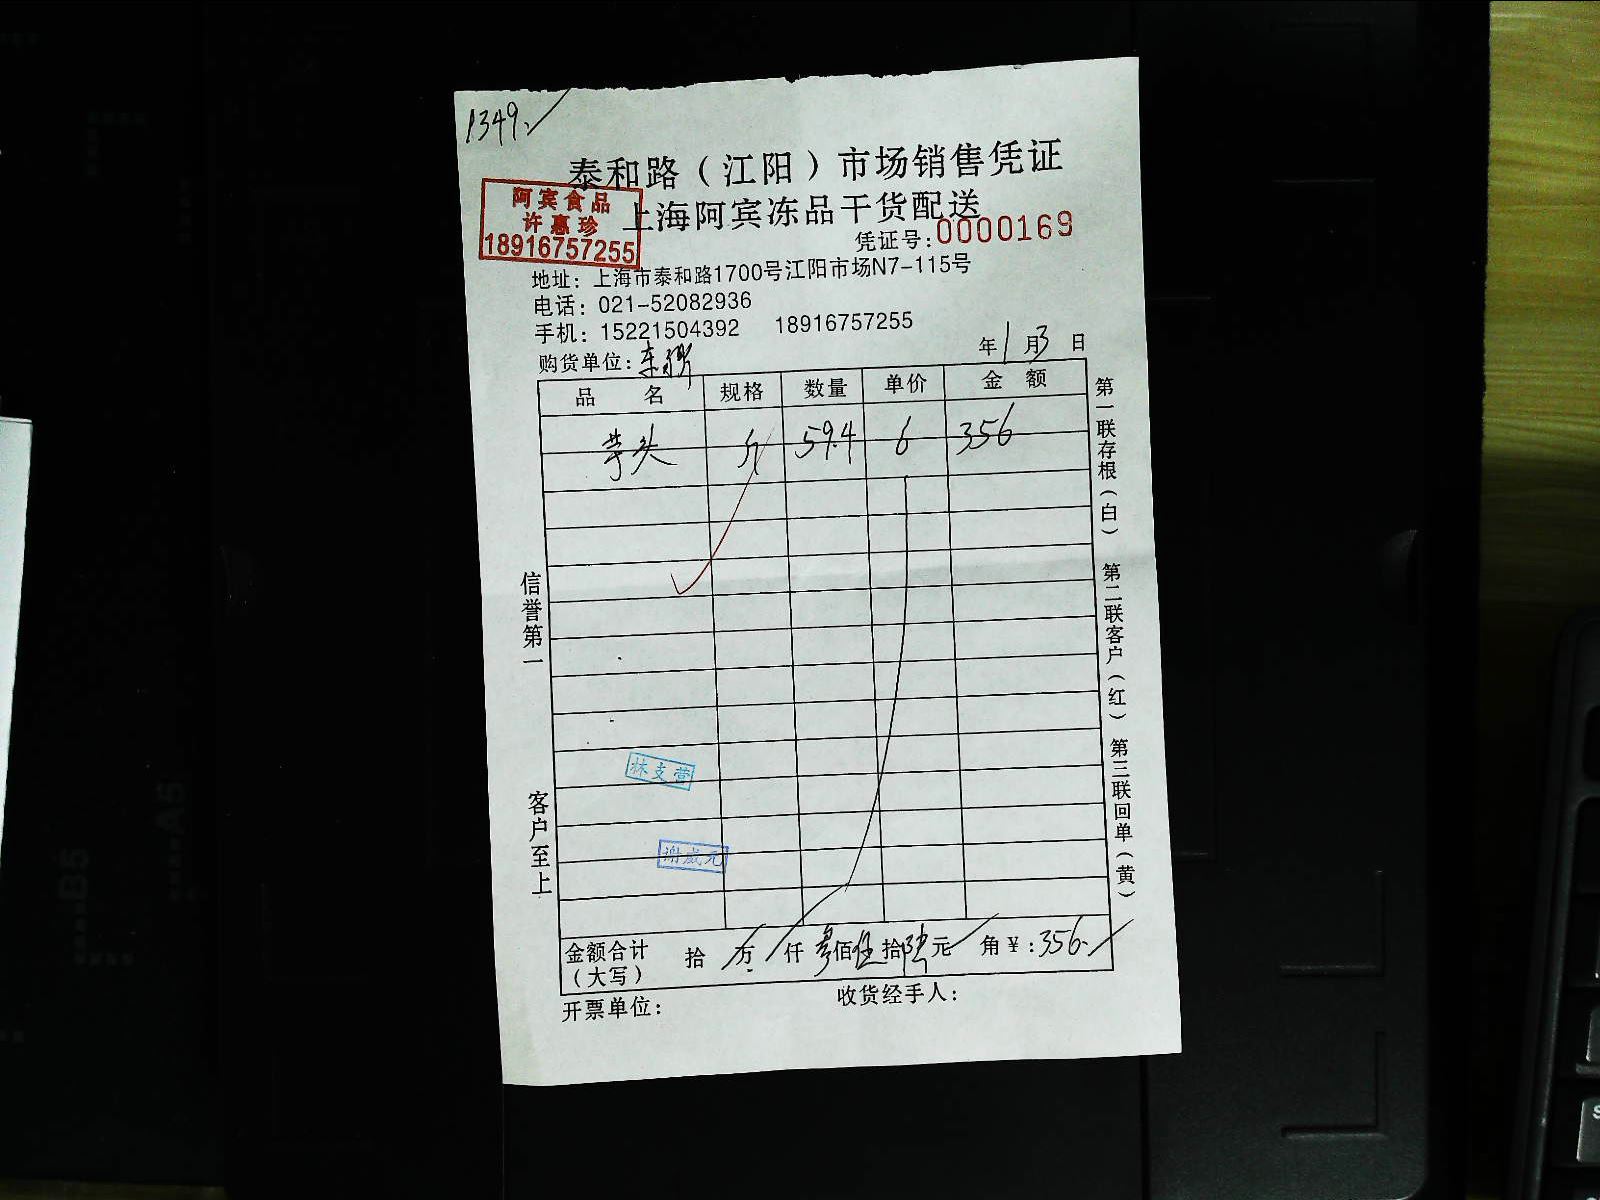 1349.
泰和路（江阳）市场销售凭证
上海阿宾冻品干货配送
阿宾食品
许惠珍
18916757255
凭证号:0000169
地址：上海市泰和路1700号江阳市场N7-115号
电话：021-52082936
手机：15221504392 18916757255
购货单位:
年1月3日
品名 规格 数量 单价 金额
芋头 斤 59.4 6 356
信誉第一
客户至上
第一联存根（白） 第二联客户（红） 第三联回单（黄）
林支营
谢成元
金额合计（大写） 拾 万 仟 叁佰伍拾陆元 角￥:356.
开票单位： 收货经手人：